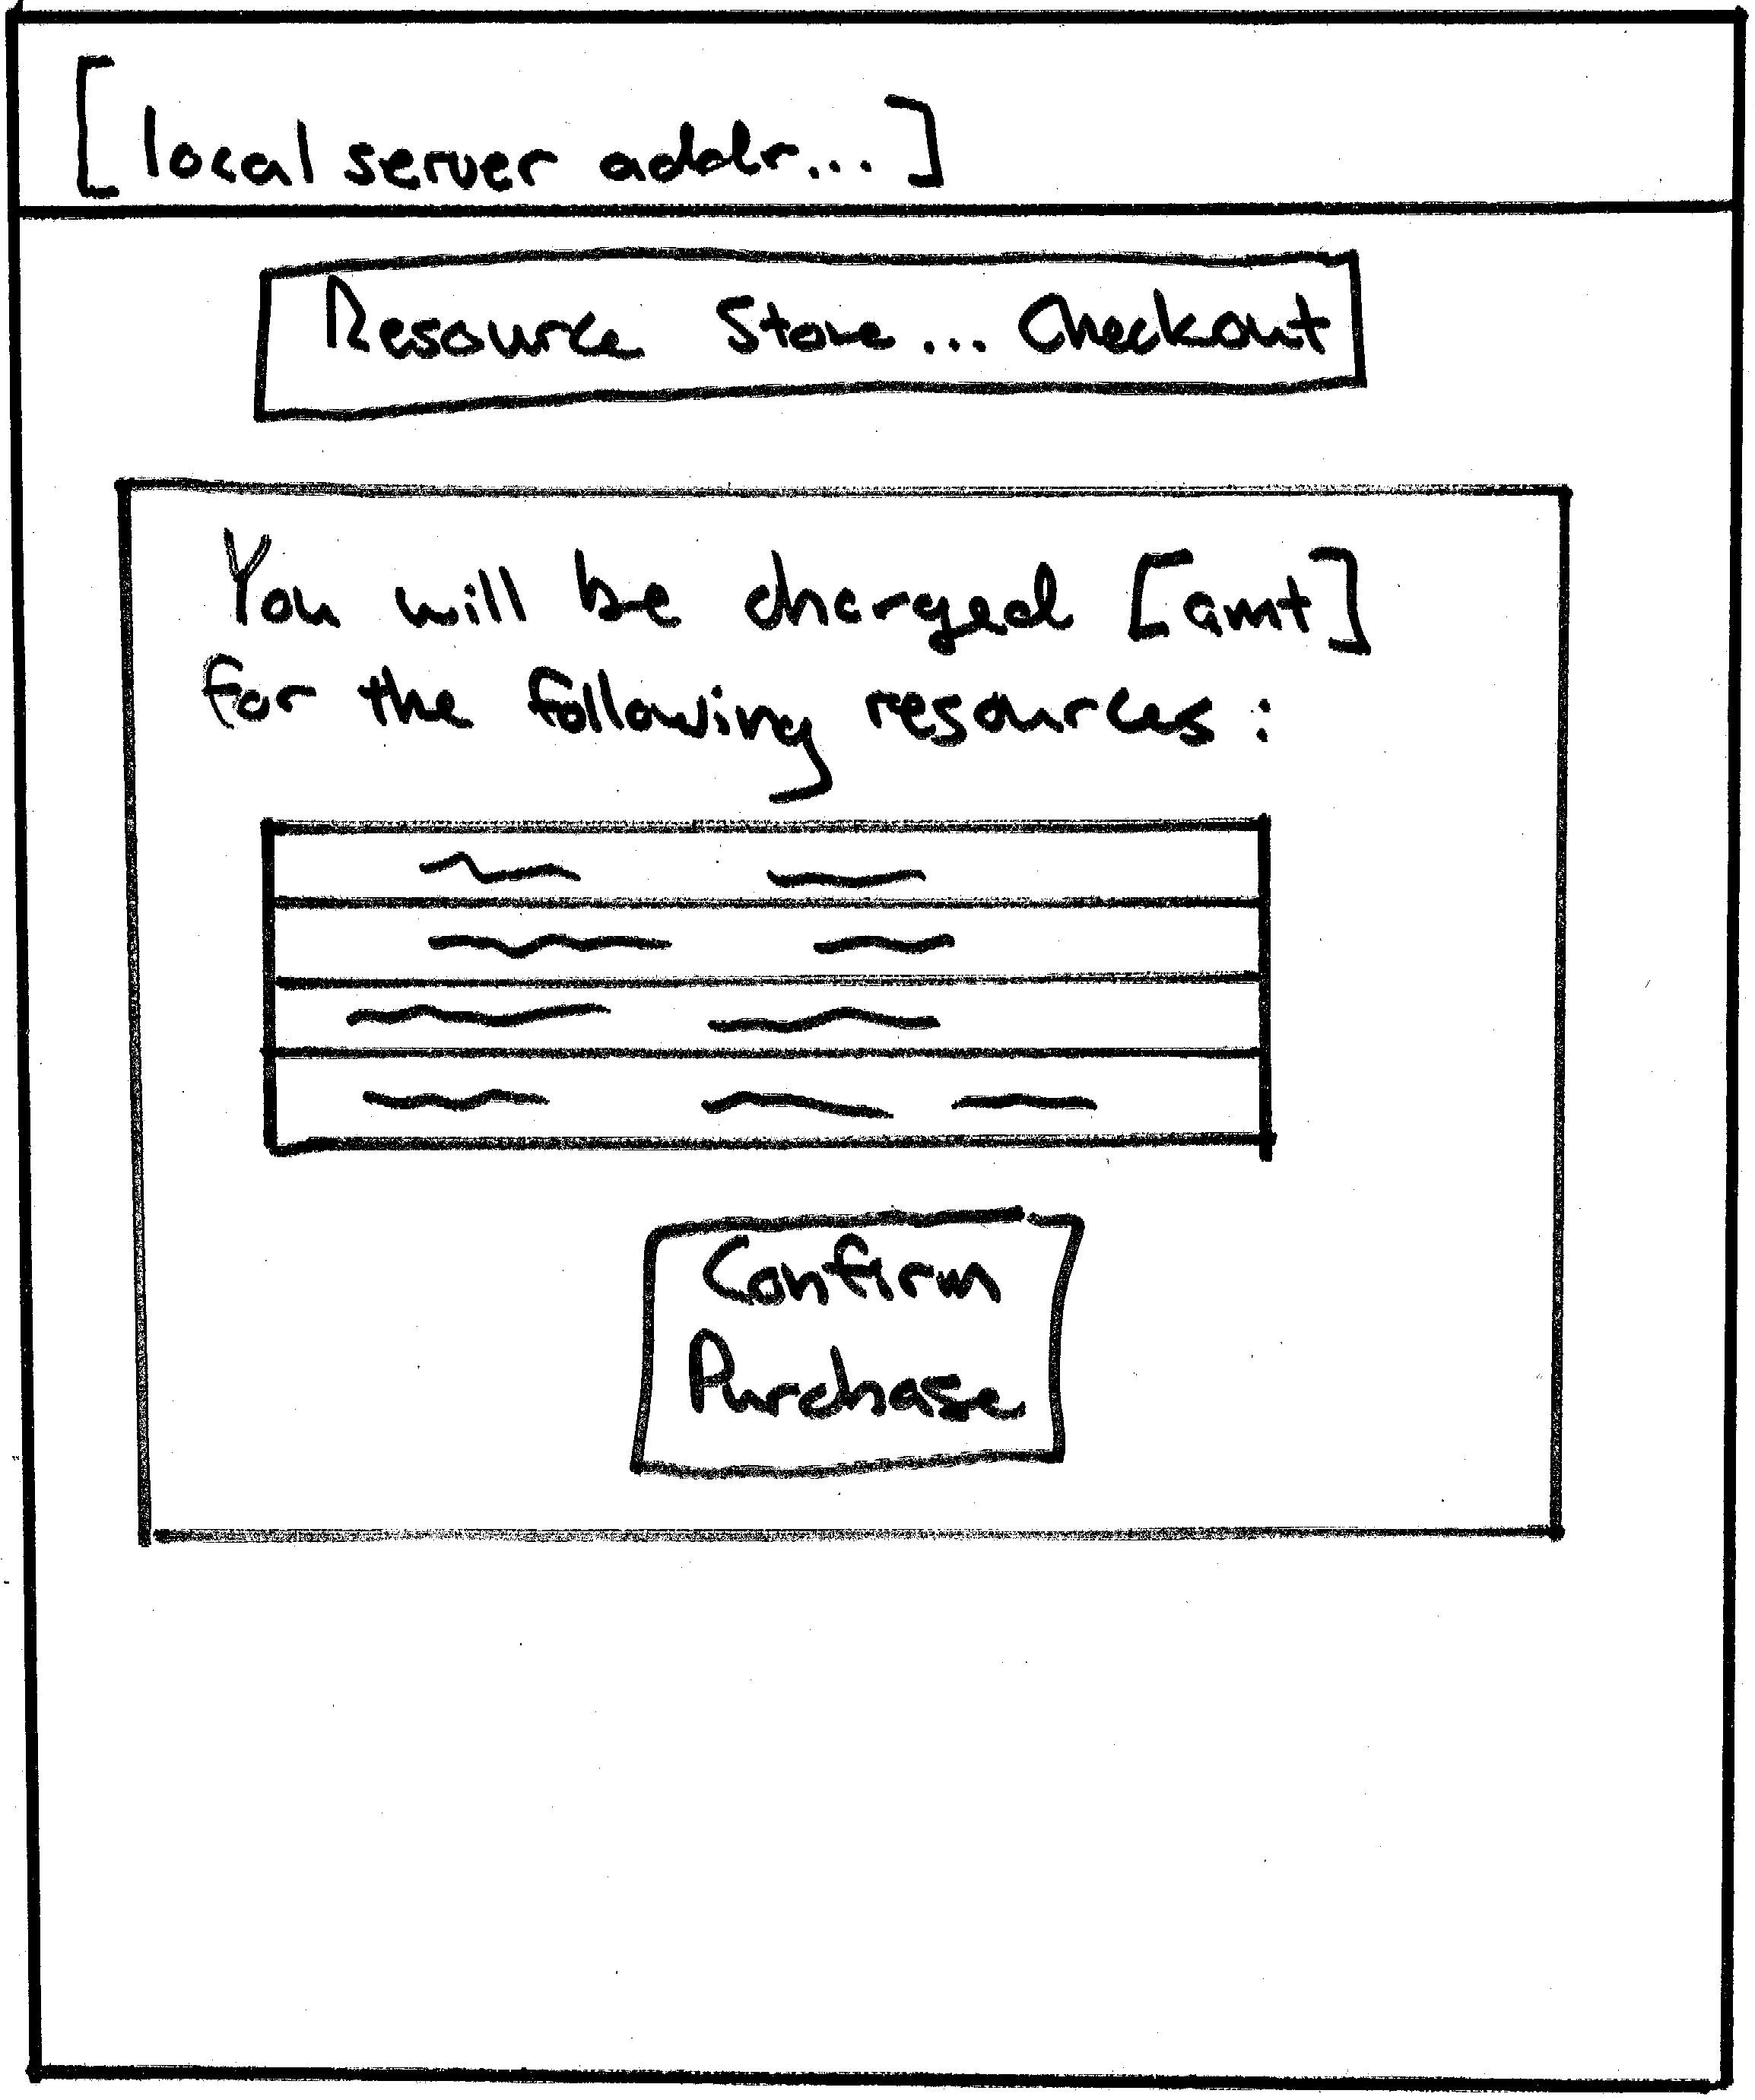 [local server addr...]
Resource Store... Checkout
You will be charged [amt]
for the following resources:
Confirm
Purchase